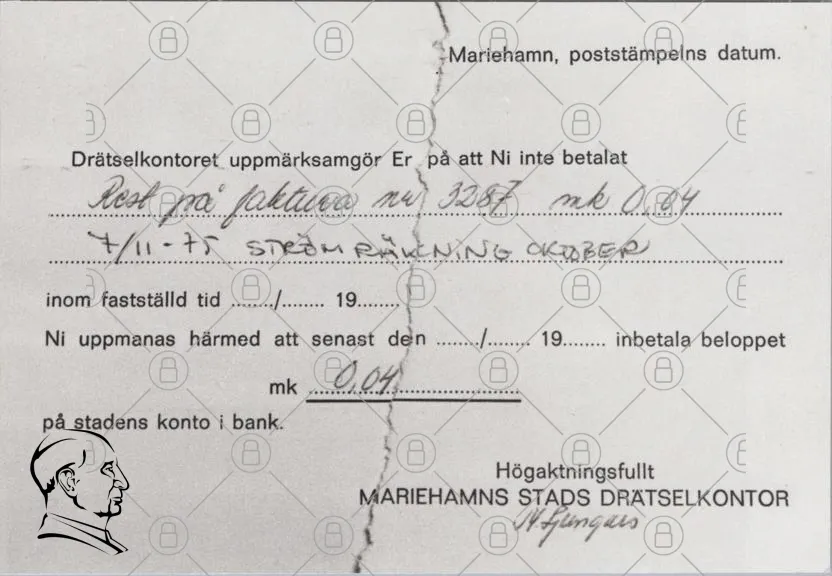 Mariehamn, poststämpelns datum.
Drätselkontoret uppmärksamgör Er på att Ni inte betalat
Rest på faktura nr 3287 mk 0,04
7/11-75 STRÖMRÄKNING OKTOBER
inom fastställd tid ......./........ 19........
Ni uppmanas härmed att senast den ......./........ 19........ inbetala beloppet
mk 0,04
på stadens konto i bank.
Högaktningsfullt
MARIEHAMNS STADS DRÄTSELKONTOR